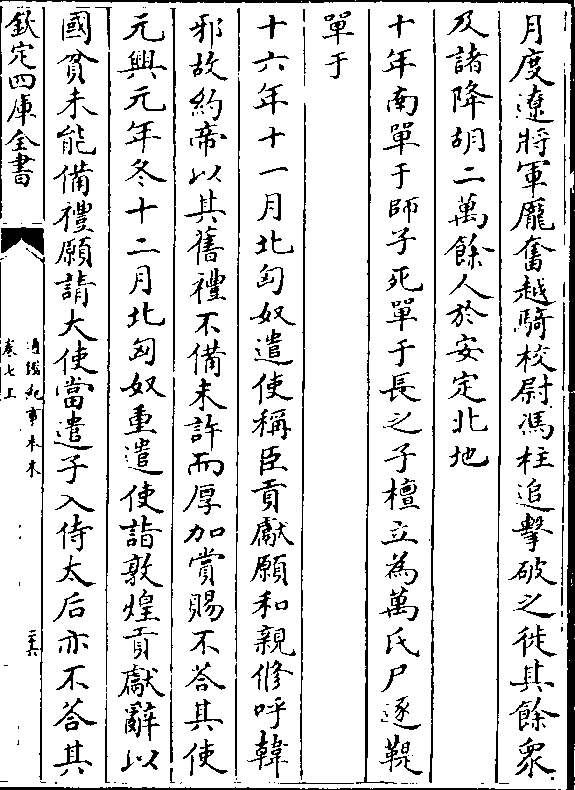 月度遼將軍龐奮越騎校尉馮柱追擊破之徙其餘衆
及諸降胡二萬餘人於安定北地
十年南單于師子死單于長之子檀立為萬氏尸逐鞮
單于
十六年十一月北匈奴遣使稱臣貢獻願和親修呼韓
邪故約帝以其舊禮不備未許而厚加賞賜不答其使
元興元年冬十二月北匈奴重遣使詣敦煌貢獻辭以
國貧未能備禮願請大使當遣子入侍太后亦不答其
欽定四庫全書
通鑑紀事本末
卷七上
三六